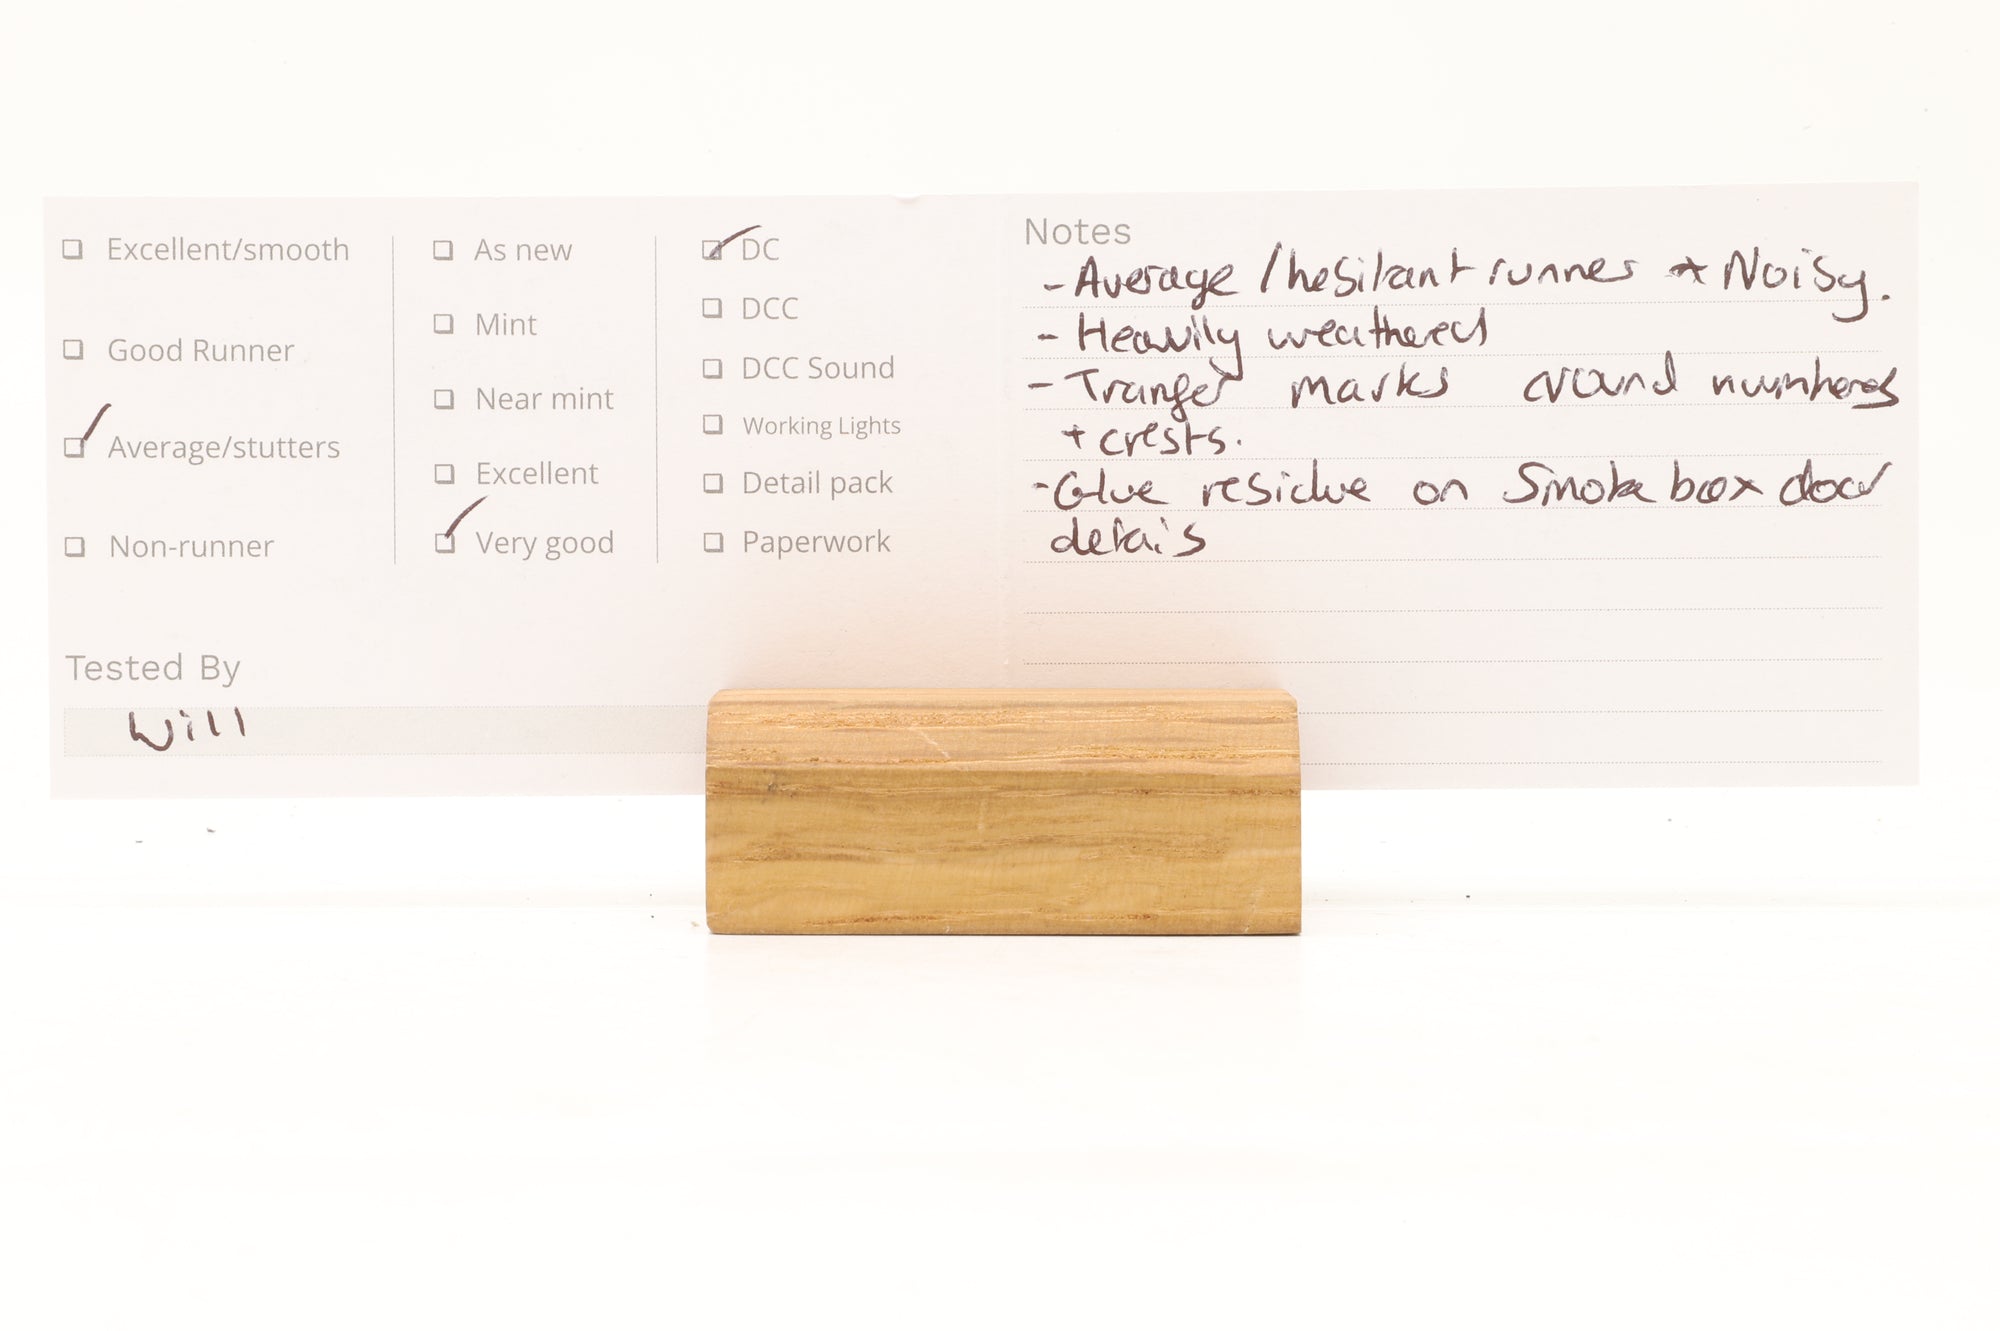 Excellent/smooth
Good Runner
Average/stutters
Non-runner
As new
Mint
Near mint
Excellent
Very good
DC
DCC
DCC Sound
Working Lights
Detail pack
Paperwork
Tested By
Will
Notes
- Average / hesitant runner * Noisy.
- Heavily weathered
- Tranfer marks around numbers
+ crests.
- Glue residue on Smoke box door
detais